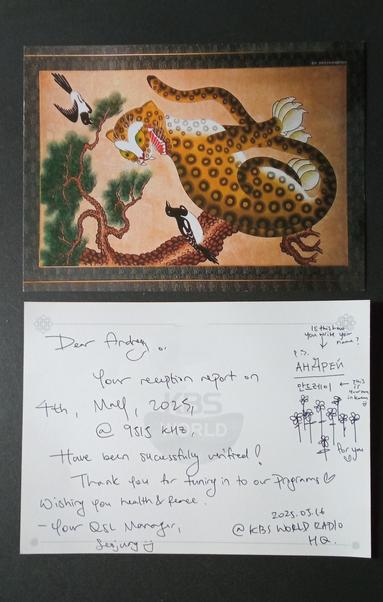 Dear Andrey,
Your reception report on
4th, May, 2025,
@ 9515 kHz,
Have been sucessfully verified!
Thank you for tuning in to our programs♡
Wishing you health & peace.
- Your QSL Manager,
Seojung
Is this how
you write your
name?
P.S.
АНДРЕЙ
안드레이 ← This
is
in Korean
for you
2025.05.16
@ KBS WORLD RADIO
HQ.
KBS
WORLD